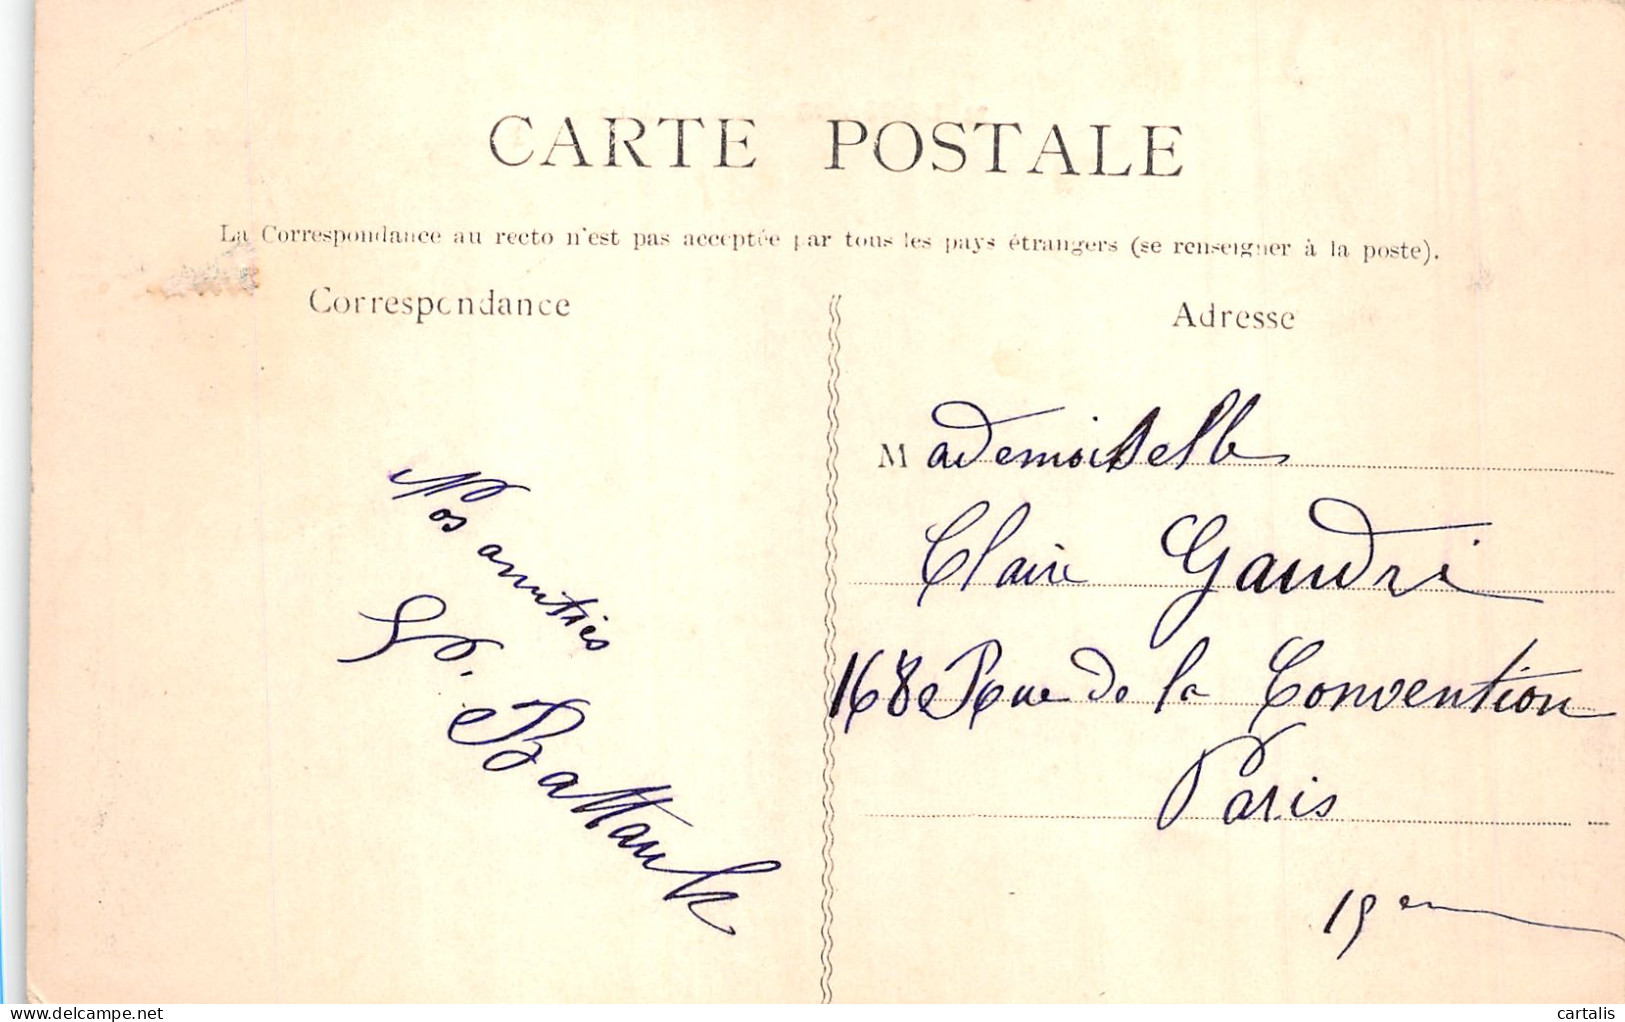 CARTE POSTALE
La Correspondance au recto n'est pas acceptée par tous les pays étrangers (se renseigner à la poste).
Correspondance
Nos amitiés
Battault
Adresse
Mademoiselle
Claire Gaudri
168 Rue de la Convention
Paris
15em
delcampe.net
cartalis